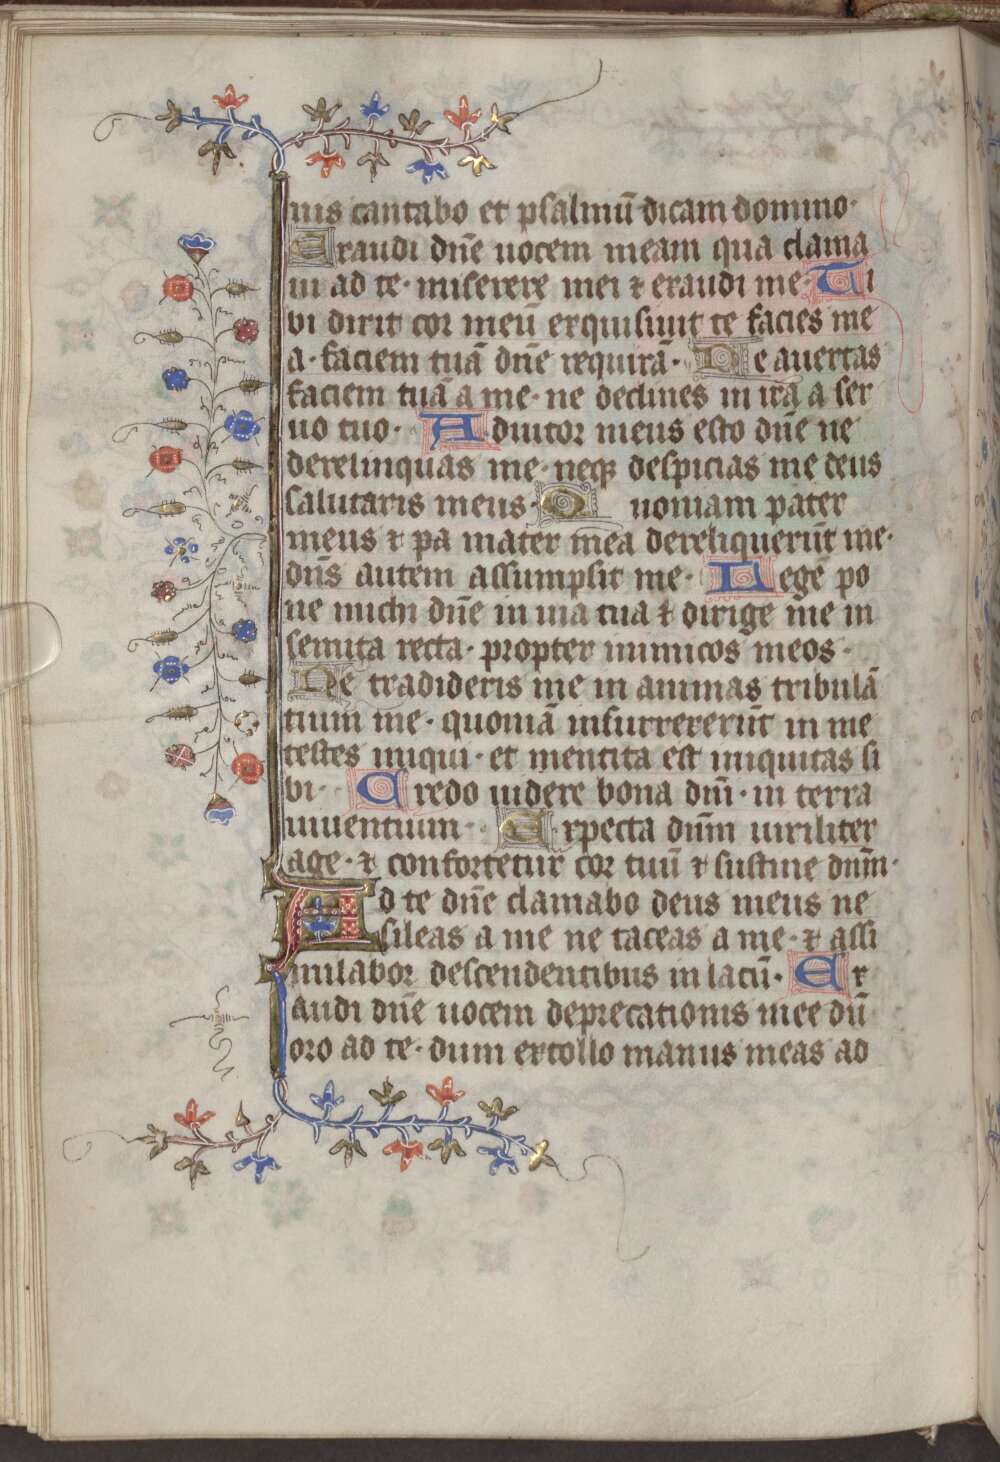 nis cantabo et psalmū dicam domino·
Exaudi dn̄e uocem meam qua clama
ui ad te· miserere mei ⁊ exaudi me· Ti
bi dixit cor meū exquisiuit te facies me
a· faciem tuā dn̄e requirā· Ne auertas
faciem tuā a me· ne declines in ira a ser
uo tuo· Adiutor meus esto dn̄e ne
derelinquas me· neqꝫ despicias me deus
salutaris meus· Quoniam pater
meus ⁊ pa mater mea dereliquerūt me·
dn̄s autem assumpsit me· Legē po
ne michi dn̄e in uia tua ⁊ dirige me in
semita recta· propter inimicos meos·
Ne tradideris me in animas tribulā
tium me· quoniā insurrexerūt in me
testes iniqui· et mentita est iniquitas si
bi· Credo uidere bona dn̄i· in terra
uiuentium· Expecta dn̄m uiriliter
age· ⁊ confortetur cor tuū ⁊ sustine dnm̄·
Ad te dn̄e clamabo deus meus ne
sileas a me ne taceas a me· ⁊ assi
milabor descendentibus in lacū· Ex
audi dn̄e uocem deprecationis mee dū
oro ad te· dum extollo manus meas ad